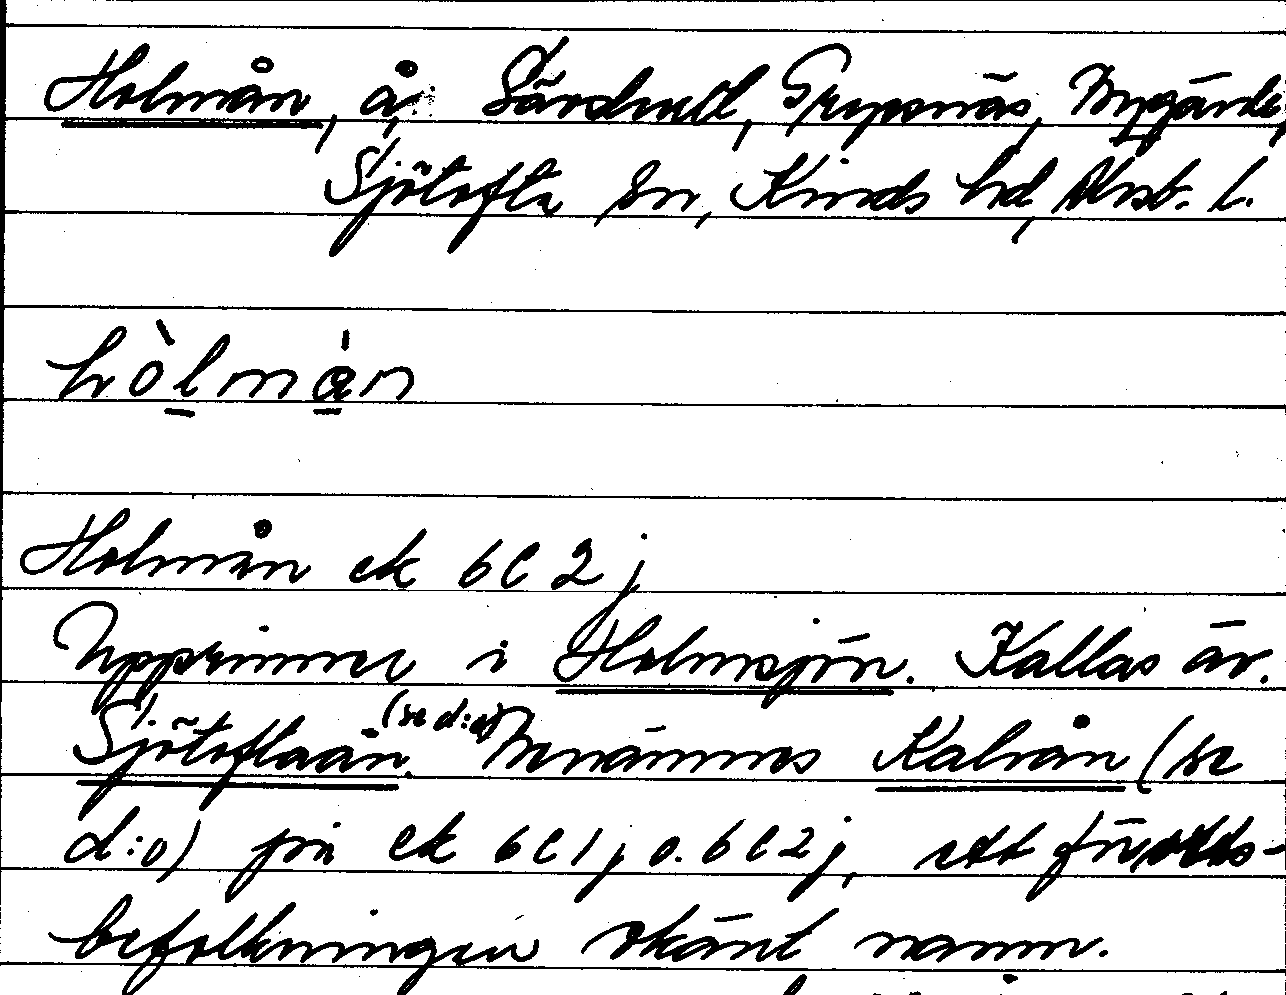 Holmån, å, Sandhult, Grypsnäs, Mygärde,
Sjötofta sn, Kinds hd, Älvsb. l.
hòlmån
Holmån ek 6C2j
Upprinner i Holmsjön. Kallas äv.
Sjötoftaån (se d:o). Benämnes Kalvån (se
d:o) på ek 6C1j o. 6C2j, ett för orts-
befolkningen okänt namn.